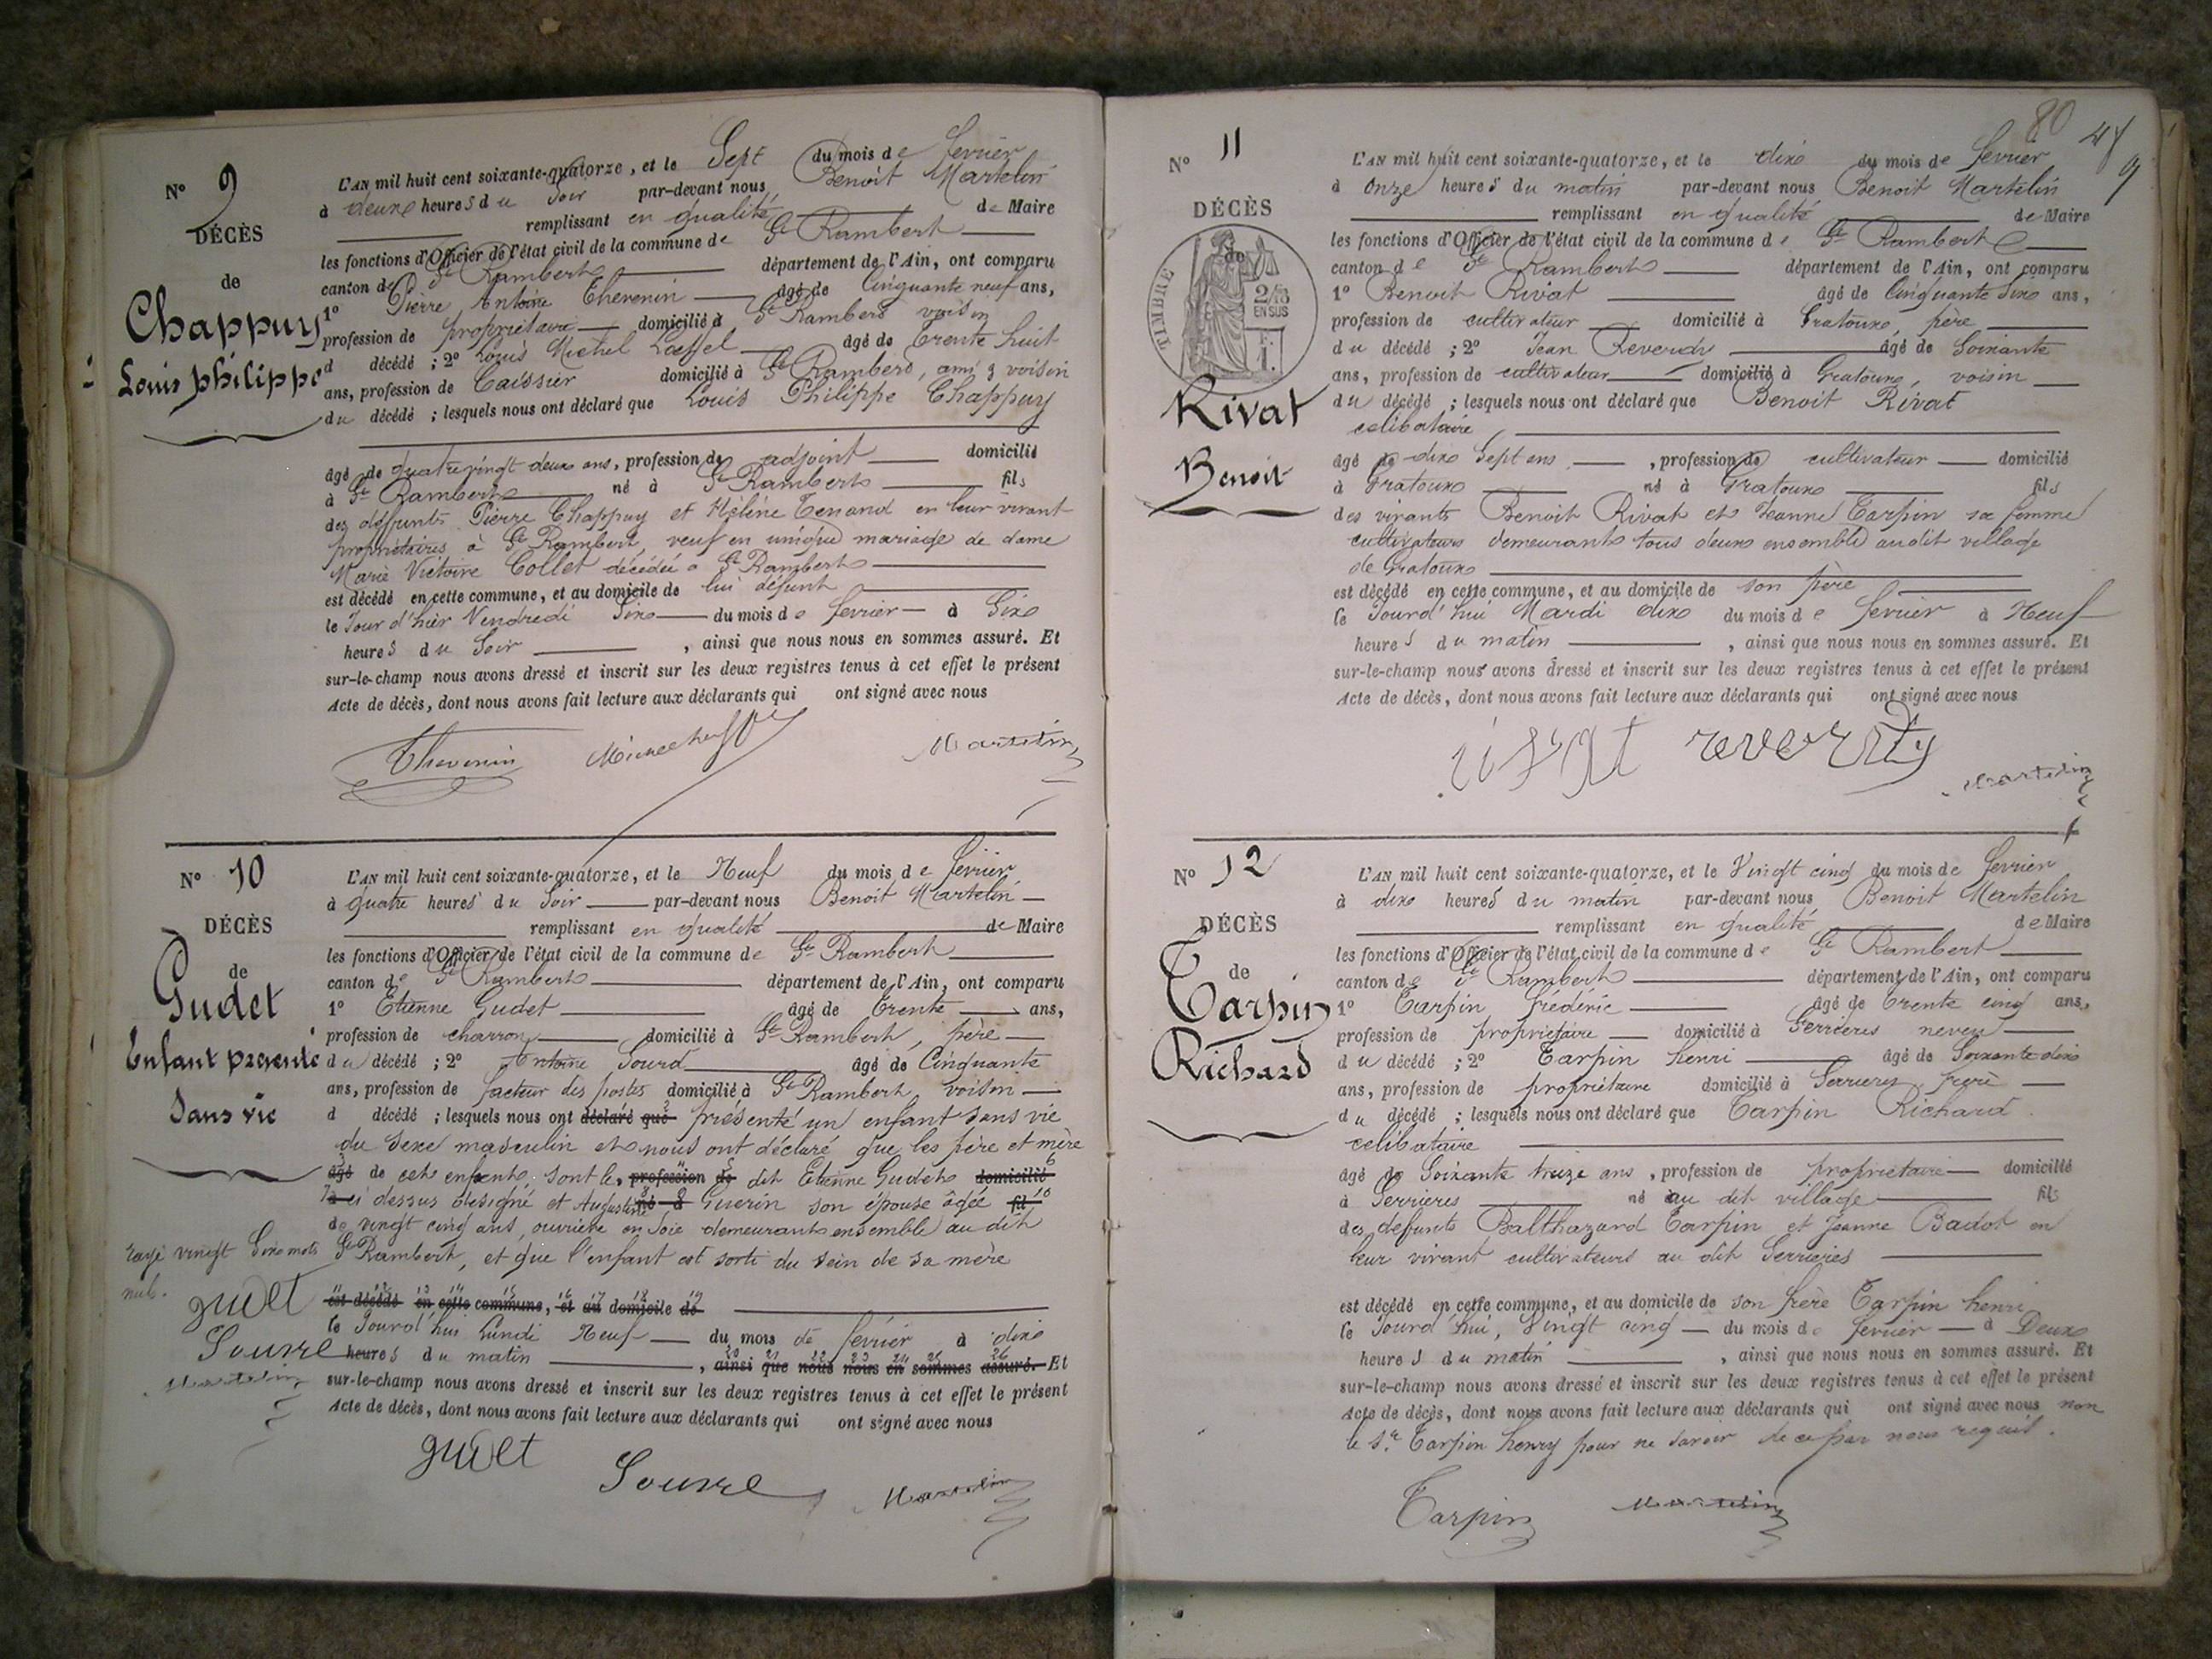 N° 9
DÉCÈS
de
Chappuy
Louis philippe
L'AN mil huit cent soixante-quatorze, et le Sept du mois de fevrier
à deux heures du Soir par-devant nous Benoit Martelin
remplissant en qualité de Maire
les fonctions d'Officier de l'état civil de la commune de St Rambert
canton de St Rambert département de l'Ain, ont comparu
1° Pierre Antoine Thevenin âgé de Cinquante neuf ans,
profession de propriétaire domicilié à St Rambert voisin
d décédé ; 2° Louis Michel Loeffel âgé de Trente huit
ans, profession de Caissier domicilié à St Rambert, ami & voisin
du décédé ; lesquels nous ont déclaré que Louis Philippe Chappuy
âgé de quatre vingt deux ans, profession de adjoint domicilié
à St Rambert né à St Rambert fils
des défunts Pierre Chappuy et Hélène Tenand en leur vivant
propriétaires à St Rambert, veuf en unique mariage de dame
Marie Victoire Collet décédée à St Rambert
est décédé en cette commune, et au domicile de lui défunt
le Jour d'hier Vendredi Six du mois de fevrier à Six
heures du Soir , ainsi que nous nous en sommes assuré. Et
sur-le-champ nous avons dressé et inscrit sur les deux registres tenus à cet effet le présent
Acte de décès, dont nous avons fait lecture aux déclarants qui ont signé avec nous
Thevenin Martelin
N° 10
DÉCÈS
de
Gudet
Enfant presenté
Sans vie
L'AN mil huit cent soixante-quatorze, et le Neuf du mois de fevrier
à quatre heures du Soir par-devant nous Benoit Martelin
remplissant en qualité de Maire
les fonctions d'Officier de l'état civil de la commune de St Rambert
canton de St Rambert département de l'Ain, ont comparu
1° Etienne Gudet âgé de Trente ans,
profession de charron domicilié à St Rambert, père
du décédé ; 2° Antoine Sourd âgé de Cinquante
ans, profession de facteur des postes domicilié à St Rambert voisin
d décédé ; lesquels nous ont déclaré que présenté un enfant sans vie
du sexe masculin et nous ont déclaré que les père et mère
âgé de cet enfant, sont le, profession de dit Etienne Gudet domicilié
à ci dessus désigné et Augustine né à Guerin son épouse âgée fil
de vingt cinq ans, ouvrière en Soie demeurant ensemble au dit
St Rambert, et que l'enfant est sorti du sein de sa mère
rayé vingt Six mots
nuls.
gudet
Martelin
est décédé en cette commune, et au domicile de
le Jourd'hui Lundi Neuf du mois de fevrier à dix
heures du matin , ainsi que nous nous en sommes assuré. Et
sur-le-champ nous avons dressé et inscrit sur les deux registres tenus à cet effet le présent
Acte de décès, dont nous avons fait lecture aux déclarants qui ont signé avec nous
gudet Martelin
80
N° 11
DÉCÈS
de
TIMBRE
2/10
EN SUS
Rivat
Benoit
L'AN mil huit cent soixante-quatorze, et le dix du mois de fevrier
à Onze heures du matin par-devant nous Benoit Martelin
remplissant en qualité de Maire
les fonctions d'Officier de l'état civil de la commune de St Rambert
canton de St Rambert département de l'Ain, ont comparu
1° Benoit Rivat âgé de Cinquante Six ans,
profession de cultivateur domicilié à Gratoux, père
du décédé ; 2° Jean Reverdy âgé de Soixante
ans, profession de cultivateur domicilié à Gratoux, voisin
du décédé ; lesquels nous ont déclaré que Benoit Rivat
celibataire
âgé de dix Sept ans , profession de cultivateur domicilié
à Gratoux né à Gratoux fils
des vivants Benoit Rivat et Jeanne Tarpin sa femme
cultivateurs demeurants tous deux ensemble audit village
de Gratoux
est décédé en cette commune, et au domicile de son père
le Jourd'hui Mardi dix du mois de fevrier à Neuf
heures du matin , ainsi que nous nous en sommes assuré. Et
sur-le-champ nous avons dressé et inscrit sur les deux registres tenus à cet effet le présent
Acte de décès, dont nous avons fait lecture aux déclarants qui ont signé avec nous
rivat reverdy Martelin
N° 12
DÉCÈS
de
Tarpin
Richard
L'AN mil huit cent soixante-quatorze, et le Vingt cinq du mois de fevrier
à dix heures du matin par-devant nous Benoit Martelin
remplissant en qualité de Maire
les fonctions d'Officier de l'état civil de la commune de St Rambert
canton de St Rambert département de l'Ain, ont comparu
1° Tarpin frédéric âgé de Trente cinq ans,
profession de propriétaire domicilié à Serrieres neveu
du décédé ; 2° Tarpin henri âgé de Soixante dix
ans, profession de propriétaire domicilié à Serrieres frère
du décédé ; lesquels nous ont déclaré que Tarpin Richard
celibataire
âgé de Soixante treize ans , profession de propriétaire domicilié
à Serrieres né au dit village fils
des defunts Balthazard Tarpin et Jeanne Badot en
leur vivant cultivateurs au dit Serrieres
est décédé en cette commune, et au domicile de son frère Tarpin henri
le Jourd'hui, Vingt cinq du mois de fevrier à Deux
heures du matin , ainsi que nous nous en sommes assuré. Et
sur-le-champ nous avons dressé et inscrit sur les deux registres tenus à cet effet le présent
Acte de décès, dont nous avons fait lecture aux déclarants qui ont signé avec nous non
le Sr Tarpin henry pour ne savoir de ce par nous requis.
Tarpin Martelin